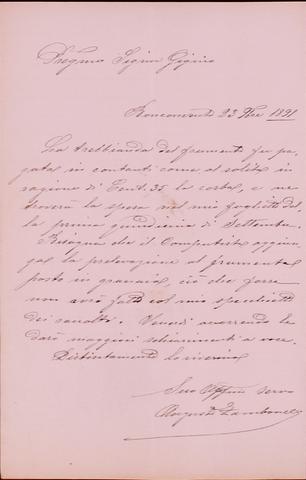 Pregmo Signor Gigino
Roncocesi 23 9bre 1891
La trebbianda del frumento fu pa-
gata in contanti, come al solito in
ragione di Cent. 35 la corba, e ne
troverà la spesa nel mio foglietto del
la prima quindicina di Settembre.
Bisogna che il Computista aggiun-
ga la prelevazione al frumento
posto in granaio, ciò che forse
non avrà fatto col mio specchietto
dei raccolti. Venerdì occorrendo le
darò maggiori schiarimenti a voce.
Distintamente la riverisco
Suo Affmo servo
Augusto Zamboni